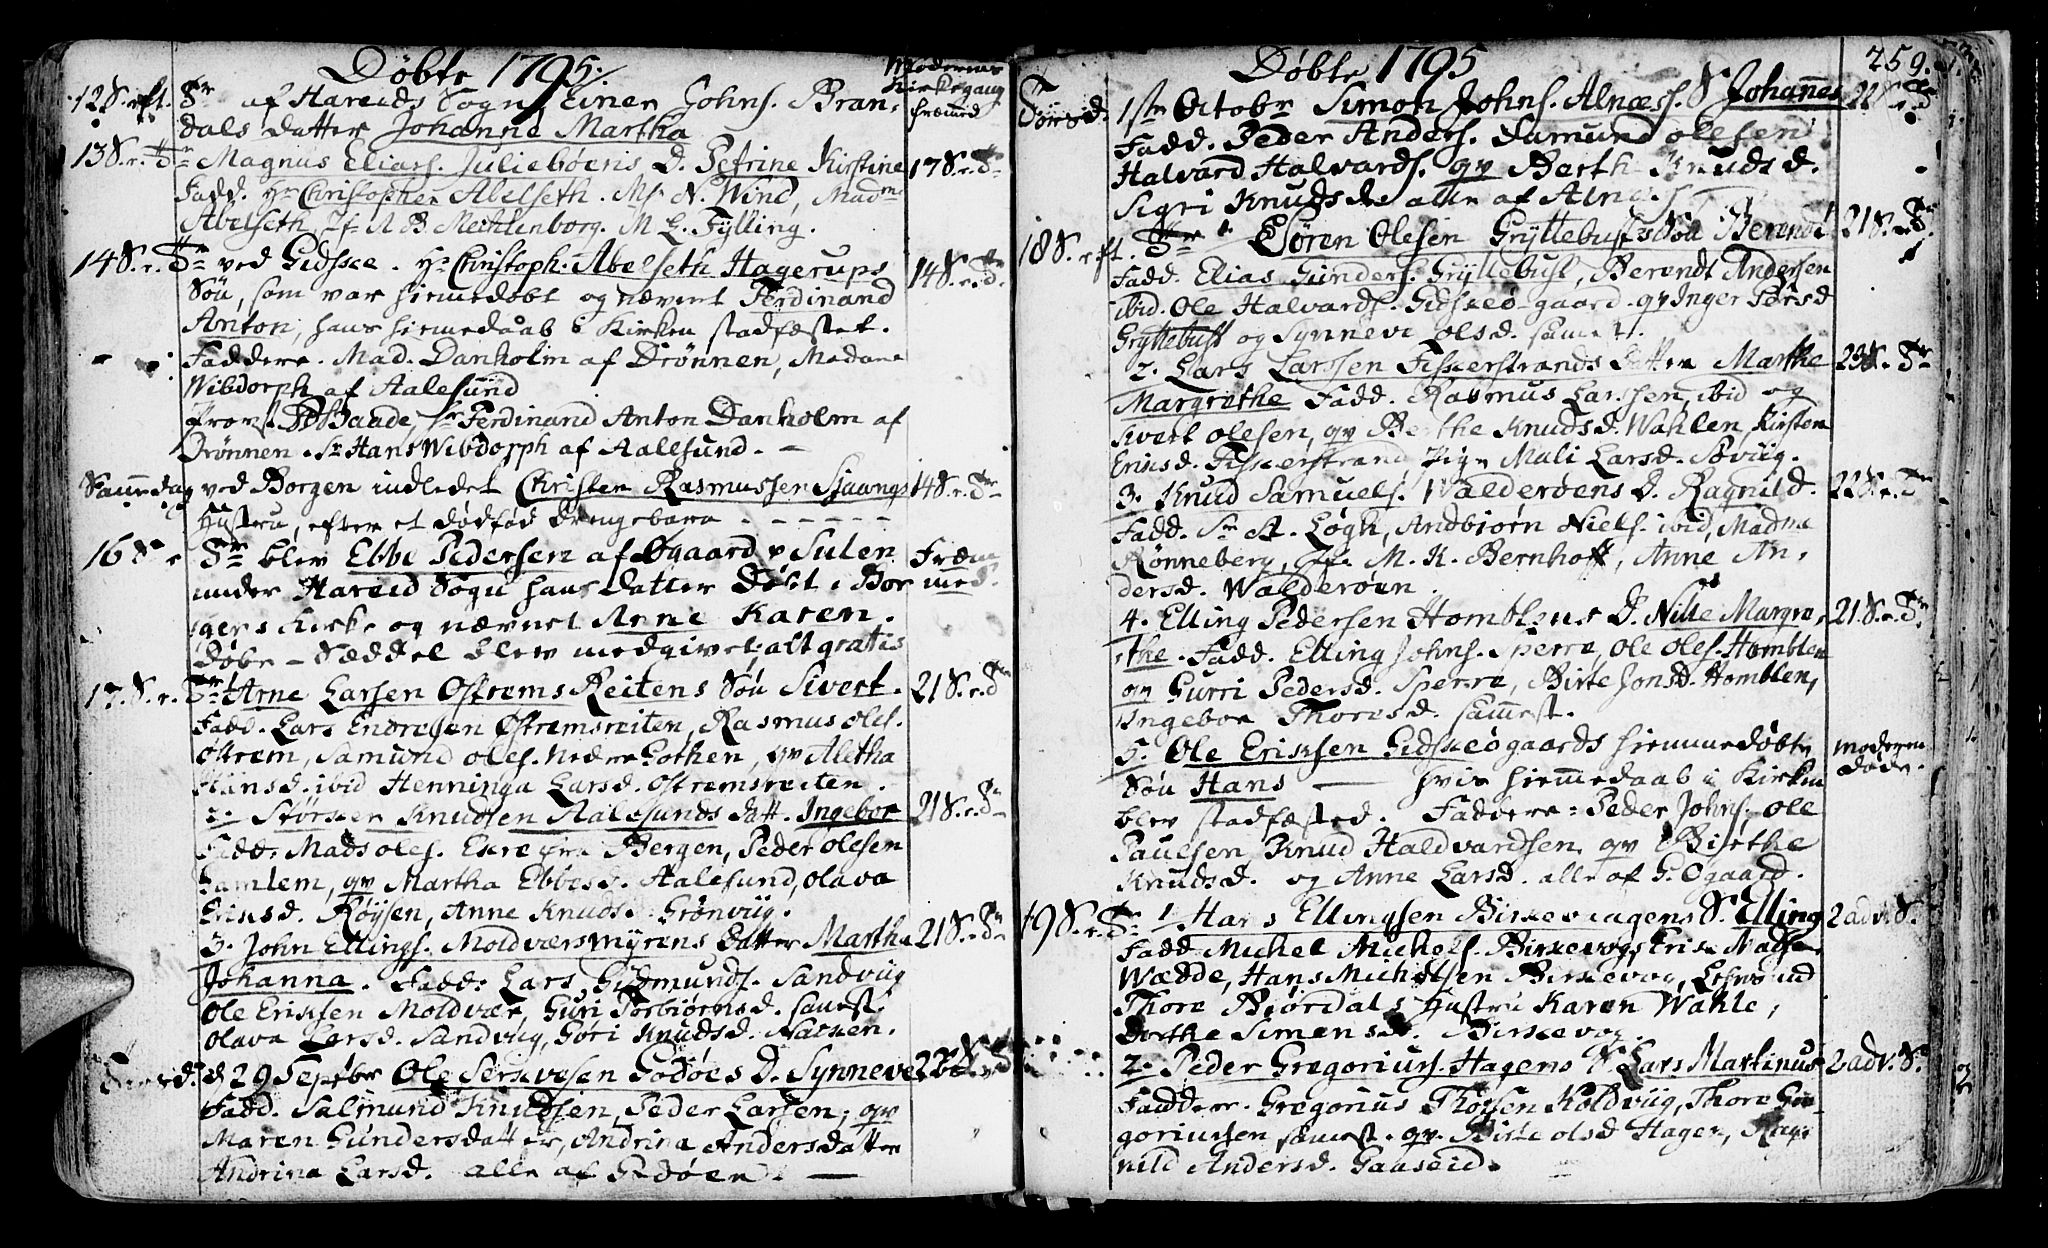 Døbte 1795.
Moderens
Kirkegang
12 S. eft. Tr. af Hareids Sogn Einer Johns. Bran-
fræmed
dals datter Johanne Martha
13 S. e. Tr. Magnus Eliass. Juliebøens D. Petrine Kirstine 17 S. e. Tr.
Fadd. Hr Christopher Abelseth. Ms. N. Wind, Madme
Abelseth, Jf. A B Mechlenborg. M. L. Fylling.
14 S. e. Tr. ved Gidsøe. Hr Christoph. Abelseth Hagerups 14 S. e. Tr.
Søn, som var hiemedøbt og nævnt Ferdinand
Anton, hans hiemedaab i Kirken stadfæstet.
Faddere. Mad. Danholm af Drønnen, Madame
Wibdorph af Aalesund
Provst Baade, Hr Ferdinand Anton Danholm af
Drønnen. Sr Hans Wibdorph af Aalesund. —
Samme dag ved Borgen indledet Christen Rasmussen Siaangs 14 S. e. Tr.
Hustru, efter et dødfød drengebarn
16 S. e Tr. blev Ebbe Pedersen af Øgaard p Sulen Fræm
under Hareid Sogn hans datter Døbt i Bor med.
gens Kirke og nævnet Anne Karen.
Døbe-Sæddel blev medgivet: alt gratis
17. S. e. Tr. Arne Larsen Ostrems Reitens Søn Sivert. 21 S. e. Tr
Fadd. Lars Endresen Ostremsreiten, Rasmus oles.
Ostrem, Samund oles. Nedre Gothen, qv Aletha
Hansd. ibid Henninga Larsd. Ostremsreiten.
2. Størker Knudsen Aalesunds Datt. Ingebor 21 S. e. Tr
Fadd: Mads oles. Bergen, Peder olesen
Famlem, qv Martha Ebbesd. Aalesund, olava
Eriksd. Røysen, Anne Knuds. Grønviig.
3. John Ellings. Moldværsmyrens Datter Martha 21 S. e Tr
Johanna. Fadd: Lars Gudmunds. Sandviig
Ole Eriksen Moldvær, Guri Torbiørnsd. samest.
olava Larsd. Sandviig, Gøri Knudsd. Narsen.
Torsd. d 29 Septbr Ole Serkvesen Godøes D. Synneve 22 S. e Tr
Fadd. Salmund Knudsen, Peder Larsen, qv
Maren Gundersdatter, Andrina Andersdatter
Andrina Larsd. alle af Godøen. —
Døbte 1795
259.
Torsd. 1ste Octobr Simon Johns. Alnæss. S Johannes 22 S. e. Tr
Fadd. Peder Anders. Samund olesen
Halvard Halvards. qv Berth. Knudsd.
Sigri Knudsd. alle af Alnæs
18 S. eft. Tr 1. Søren Olesen Gryttebusts Søn Berendt 21 S. e. Tr
Fadd. Elias Gunders. Gryttebust, Berendt Andersen
ibid. Ole Halvards. Gidsøe-gaard. qv Inger Persd
Gryttebust og Synnevi olsd. samest.
2. Lars Larssen Fisserstrands Datter Marthe 23 S. e. Tr
Margrethe Fadd. Rasmus Larssen, ibid og
Sivert olesen, qv Berthe Knudsd. Wahlen, Kirsten
Eriksd. Fisserstrand, Pige Mali Larsd. Søviig.
3. Knud Samuels. Walderøens D. Ragnild. 22 S. e. Tr
Fadd. Sr A. Løgh, Andbiørn Niels. ibid, Madme
Rønneberg, Jf. M. K. Bernhoft, Anne An-
dersd. Walderøen.
4. Elling Pedersen Homblens D. Nille Margre- 21 S. e. Tr
the. Fadd. Elling Johns. Sperre, Ole Oles. Homblen
qv Gurri Pedersd. Sperre, Birte Jonsd. Homblen,
Ingebor Thoresd. samest.
5. Ole Eriksen Gidsøegaards hiemmedøbte Moderen
død.
Søn Hans — hvis hiemmedaab i Kirken
blev stadfæsted. Faddere: Peder Johns. Ole
Paulsen Knud Haldvardsen qv Birthe
Knudsd. og Anne Larsd. alle af G. Ogaard.
19 S. e. Tr 1. Hans Ellingsen Birkevaagens S. Elling 2 adv. S.
Fadd Michel Michels. Birkevog Erik Madsen
Wædde, Hans Michelsen Birkevog,
Thore Biørdals Hustru Karen Wahle,
Dorthe Simensd. Birkevog.
2. Peder Gregorius. Hagens S Lars Martinus 2 adv. S.
Faddere. Gregorius Thørsen Koldviig, Thore Gre-
goriussen samest. qv Birte olsd Hagen, Rag-
nild Andersd. Gaaseid.